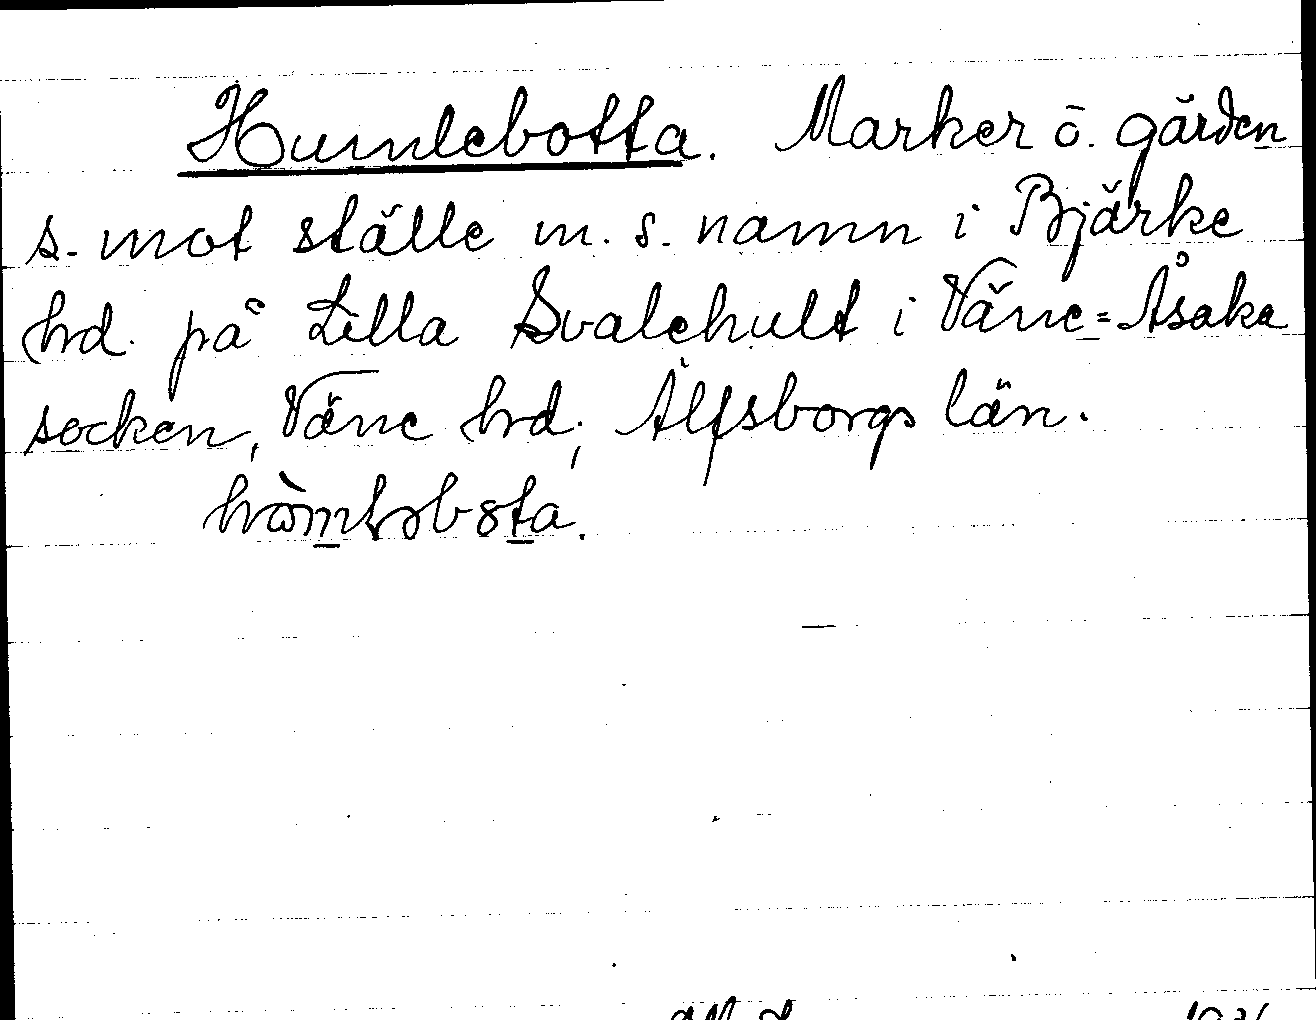 Humlebotta. Marker ö. gården
s. mot ställe m. s. namn i Bjärke
hd. på Lilla Svalehult i Väne=Åsaka
socken, Väne hd, Älfsborgs län.